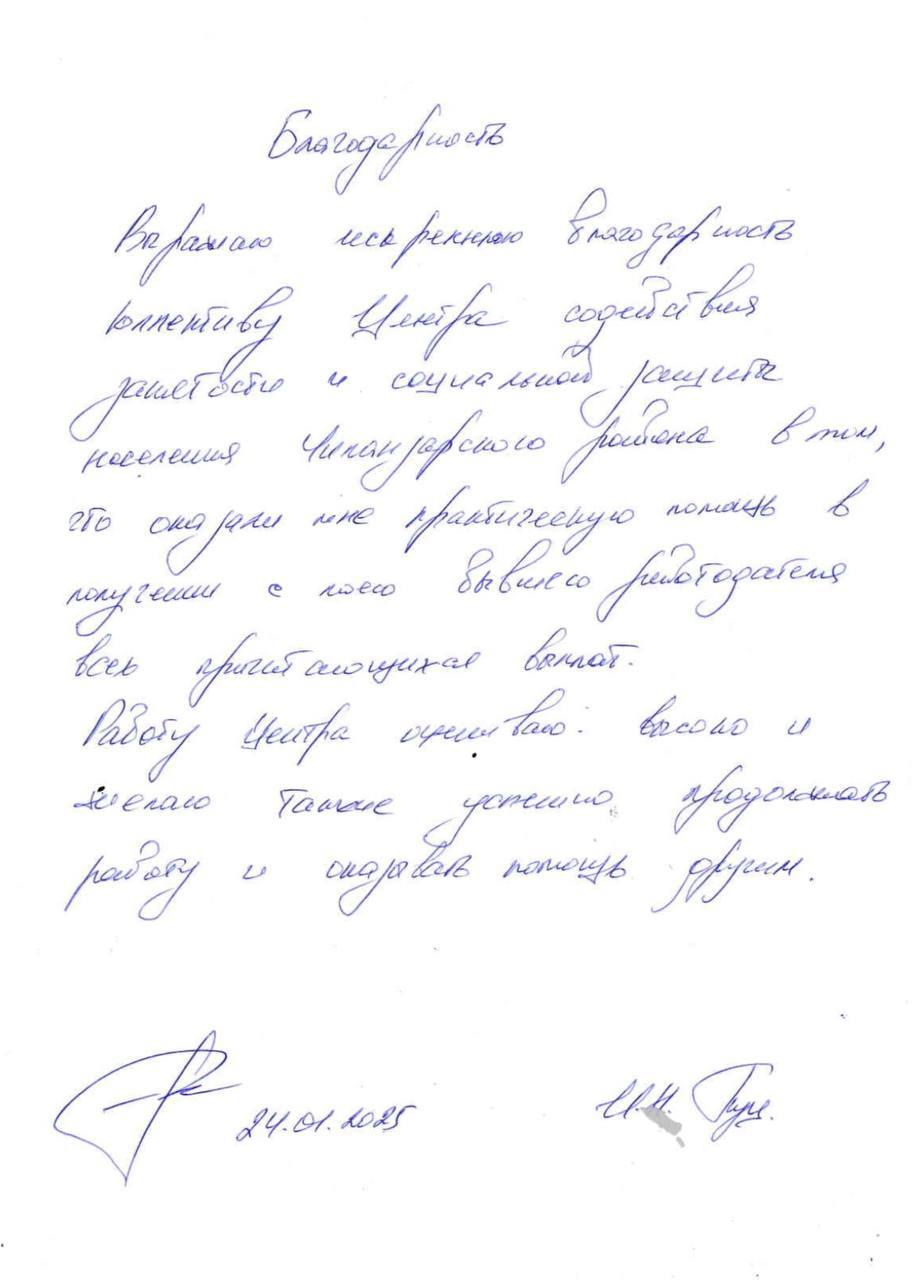 Благодарность
Выражаю искреннюю благодарность
коллективу Центра содействия
занятости и социальной защиты
населения Чиланзарского района в том,
что оказали мне практическую помощь в
получении с моего бывшего работодателя
всех причитающихся выплат.
Работу Центра оцениваю высоко и
желаю также успешно продолжать
работу и оказывать помощь другим.
24.01.2025 И.Н.